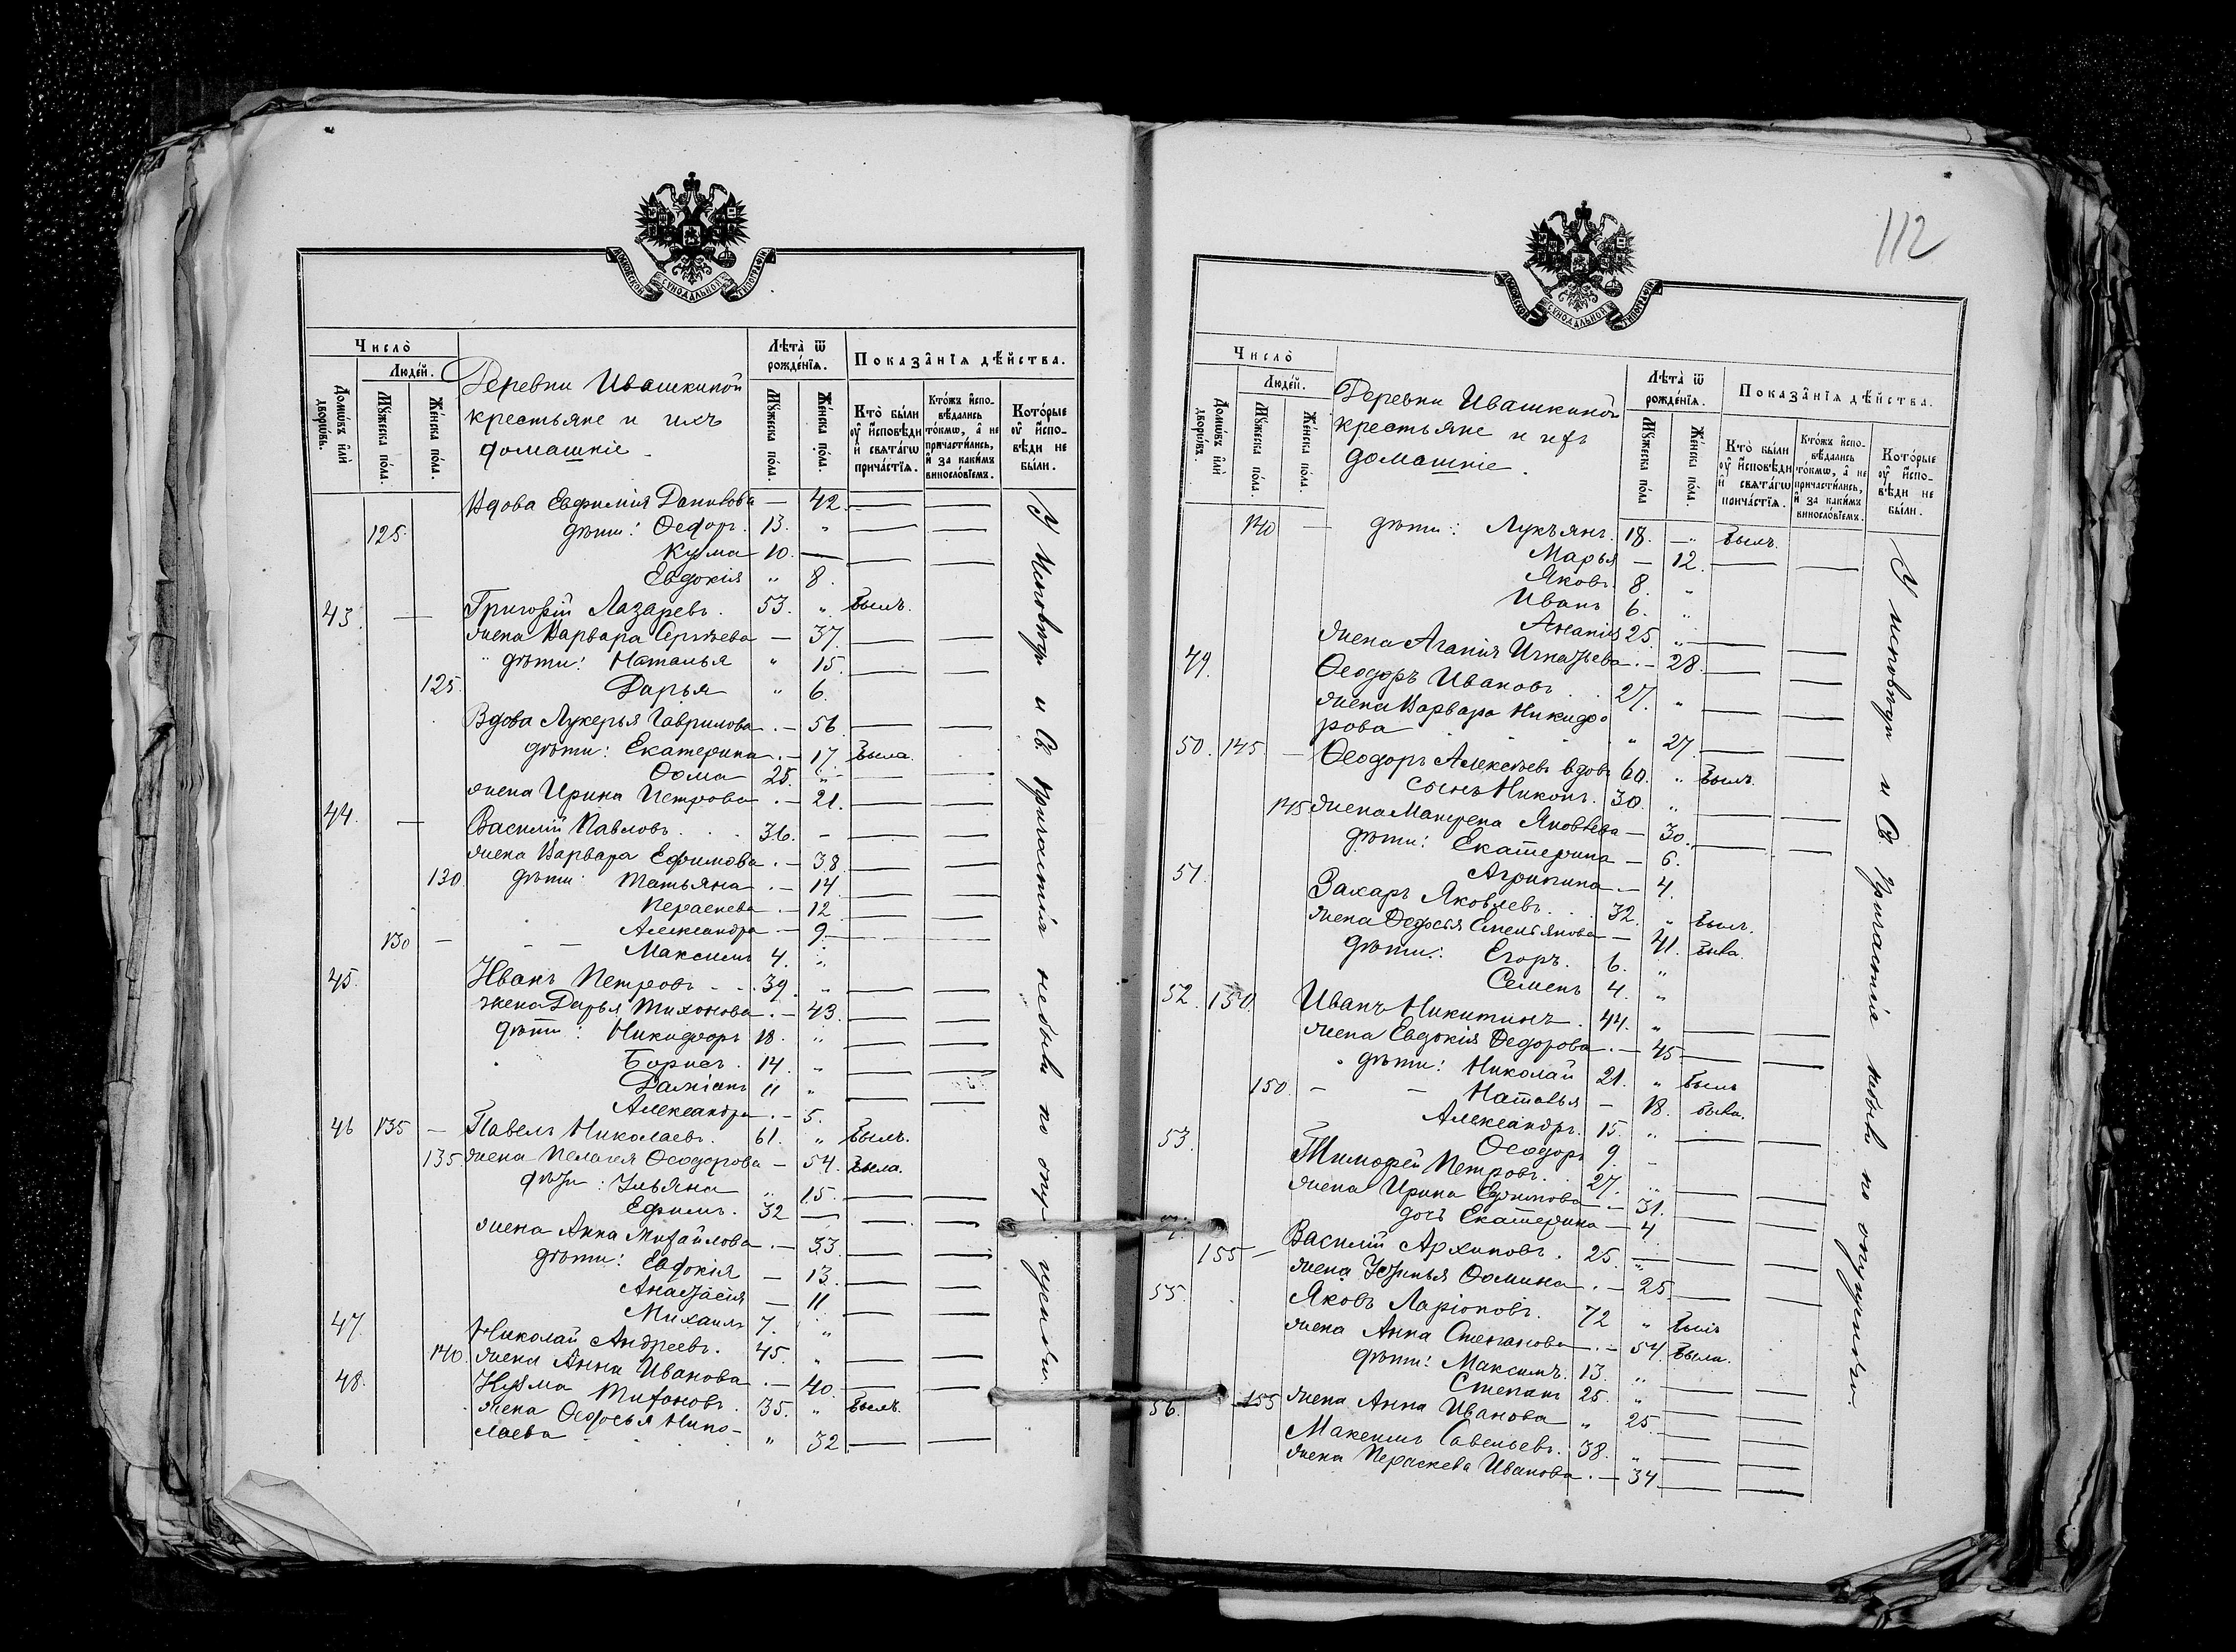 МОСКОВСКОЙ СУНОДАЛЬНОЙ ТИПОГРАФІИ
Число̀
Людей.
Домѡвъ илѝ дворѡвъ.
Мꙋжеска пола.
Женска пола.
Деревни Ивашкиной
крестьяне и ихъ
домашніе
Лѣта̀ ѿ рожденїѧ.
Мꙋжеска пола.
Женска пола.
Показанїѧ дѣйства.
Кто̀ были ᲂу҆ исповѣди и свѧтагѡ причастїѧ.
Ктожъ исповѣдались токмѡ, а не причастились, и за какимъ винословїемъ.
Которые ᲂу҆ исповѣди не были.
Вдова Евфимія Данилова — 42. — —
125. дѣти: Ѳедоръ. 13. „ — —
Кузма 10. — — —
Евдокія „ 8.
43. — Григорій Лазаревъ. 53. „ былъ.
жена Варвара Сергѣева — 37. — —
дѣти: Наталья „ 15. — —
125. Дарья „ 6.
Вдова Лукерья Гаврилова. — 56. — —
дѣти: Екатерина. — 17. была.
Ѳома 25. „ — —
жена Ирина Петрова. — 21. — —
44. — Василій Павловъ. 36. — — —
жена Варвара Ефимова. — 38. — —
130. дѣти: Татьяна. — 14. — —
Параскева. — 12. — —
Александра — 9. — —
130 — Максимъ 4. „
45. Иванъ Петровъ. 39. „ — —
жена Дарья Тихонова. — 43. — —
дѣти: Никифоръ 18. „ — —
Борисъ. 14. „ — —
Даміанъ 11 „ — —
Александра. — 5.
46 135 — Павелъ Николаевъ. 61. „ былъ.
135. жена Пелагея Ѳеодорова — 54. была.
дѣти: Ульяна „ 15. — —
Ефимъ. 32 — — —
жена Анна Михайлова. — 33. — —
дѣти: Евдокія — 13. — —
Анастасія — 11 — —
Михаилъ 7. „
47. Николай Андреевъ. 45. „ — —
140. жена Анна Иванова. — 40. — —
48. Кузма Тихоновъ. 35. „ былъ.
жена Ѳедосья Нико-
лаева „ 32. — —
У исповѣди и Св. причастія не были по опущенію.
112
МОСКОВСКОЙ СУНОДАЛЬНОЙ ТИПОГРАФІИ
Число̀
Людей.
Домѡвъ илѝ дворѡвъ.
Мꙋжеска пола.
Женска пола.
Деревни Ивашкиной
крестьяне и ихъ
домашніе.
Лѣта̀ ѿ рожденїѧ.
Мꙋжеска пола
Женска пола.
Показанїѧ дѣйства.
Кто̀ были ᲂу҆ исповѣди и свѧтагѡ причастїѧ.
Ктожъ исповѣдались токмѡ, а не причастились, и за какимъ винословїемъ.
Которые ᲂу҆ исповѣди не были.
140 — дѣти: Лукъянъ. 18. — „ былъ.
Марья — 12. — —
Яковъ. 8. „
Иванъ 6. „
Ананія 25. „ — —
жена Агапія Игнатьева. — 28. — —
49. Ѳеодоръ Ивановъ. 27. „ — —
жена Варвара Никифо
рова „ 27. — —
50. 145. — Ѳеодоръ Алексѣевъ вдовъ 60. „ былъ.
сынъ Никонъ. 30. „ — —
145 жена Матрена Яковлева — 30. — —
дѣти: Екатерина — 6.
Агрипина. — 4.
51. Захаръ Яковлевъ. 32. „ былъ.
жена Ѳедосья Емельянова — 41. была.
дѣти: Егоръ. 6. „
Семенъ 4. „
52. 150. Иванъ Никитинъ. 44. „ — —
жена Евдокія Ѳедорова. — 45 — —
дѣти: Николай 21. „ былъ
150. — — Наталья — 18. была.
Александръ. 15. „ — —
Ѳеодоръ 9. „
53. Тимофей Петровъ. 27. „ — —
жена Ирина Ефимова — 31. — —
дочь Екатерина — 4.
155 — Василій Архиповъ. 25. „ — —
жена Устинья Ѳомина. — 25. — —
55. Яковъ Ларіоновъ. 72 „ былъ
жена Анна Степанова. — 54. была.
дѣти: Максимъ. 13. „ — —
Степанъ 25. „ — —
155 жена Анна Иванова „ 25. — —
56. Максимъ Савельевъ. 38. „ — —
жена Параскева Иванова. — 34. — —
У исповѣди и Св. причастія не были по опущенію.